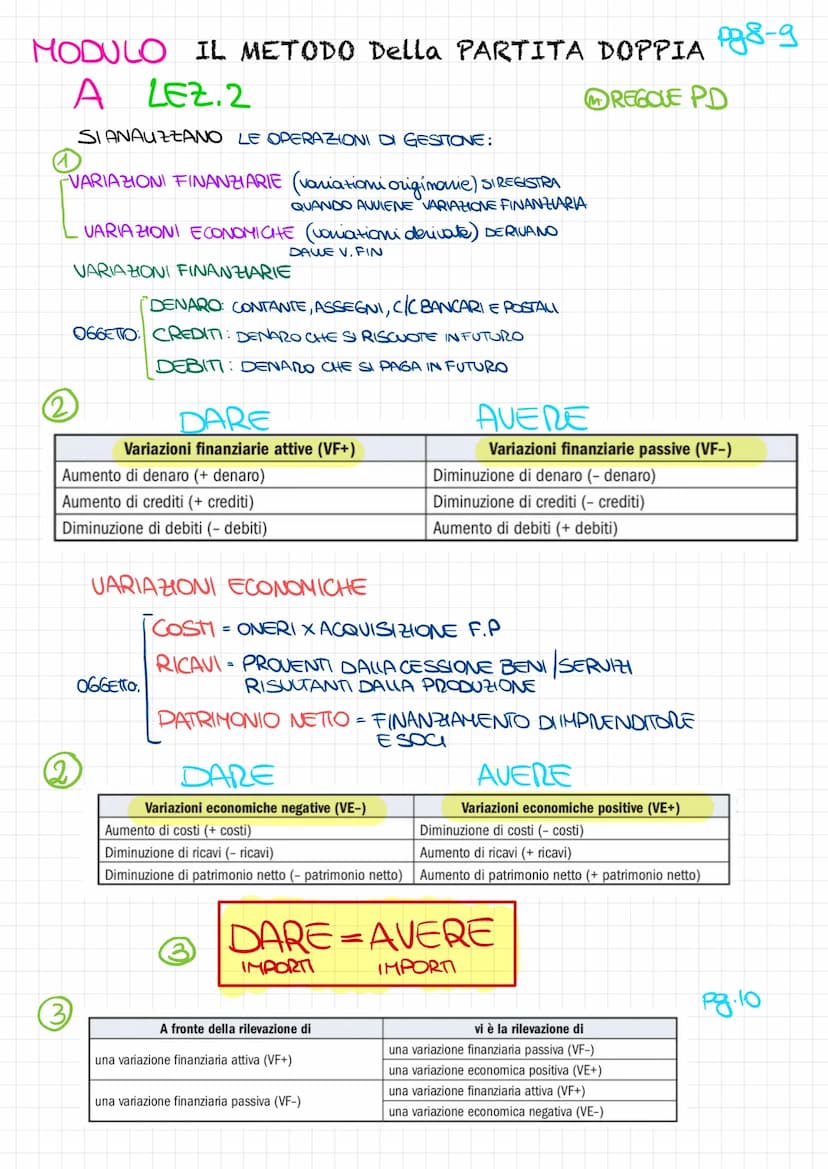 MODULO IL METODO Della PARTITA DOPPIA pg 8-9
A LEZ.2
REGOLE PD
SI ANALIZZANO LE OPERAZIONI DI GESTIONE:
1
VARIAZIONI FINANZIARIE (variazioni originarie) SI REGISTRA
QUANDO AVVIENE VARIAZIONE FINANZIARIA
VARIAZIONI ECONOMICHE (variazioni derivate) DERIVANO
DALLE V. FIN
VARIAZIONI FINANZIARIE
OGGETTO:
DENARO: CONTANTE, ASSEGNI, C/C BANCARI E POSTALI
CREDITI: DENARO CHE SI RISCUOTE IN FUTURO
DEBITI: DENARO CHE SI PAGA IN FUTURO
2
DARE AVERE
Variazioni finanziarie attive (VF+) Variazioni finanziarie passive (VF–)
Aumento di denaro (+ denaro) Diminuzione di denaro (– denaro)
Aumento di crediti (+ crediti) Diminuzione di crediti (– crediti)
Diminuzione di debiti (– debiti) Aumento di debiti (+ debiti)
VARIAZIONI ECONOMICHE
OGGETTO.
COSTI = ONERI X ACQUISIZIONE F.P
RICAVI = PROVENTI DALLA CESSIONE BENI/SERVIZI
RISULTANTI DALLA PRODUZIONE
PATRIMONIO NETTO = FINANZIAMENTO DI IMPRENDITORE
E SOCI
2
DARE AVERE
Variazioni economiche negative (VE–) Variazioni economiche positive (VE+)
Aumento di costi (+ costi) Diminuzione di costi (– costi)
Diminuzione di ricavi (– ricavi) Aumento di ricavi (+ ricavi)
Diminuzione di patrimonio netto (– patrimonio netto) Aumento di patrimonio netto (+ patrimonio netto)
3
DARE = AVERE
IMPORTI IMPORTI
pg.10
3
A fronte della rilevazione di vi è la rilevazione di
una variazione finanziaria attiva (VF+) una variazione finanziaria passiva (VF–)
una variazione economica positiva (VE+)
una variazione finanziaria passiva (VF–) una variazione finanziaria attiva (VF+)
una variazione economica negativa (VE–)